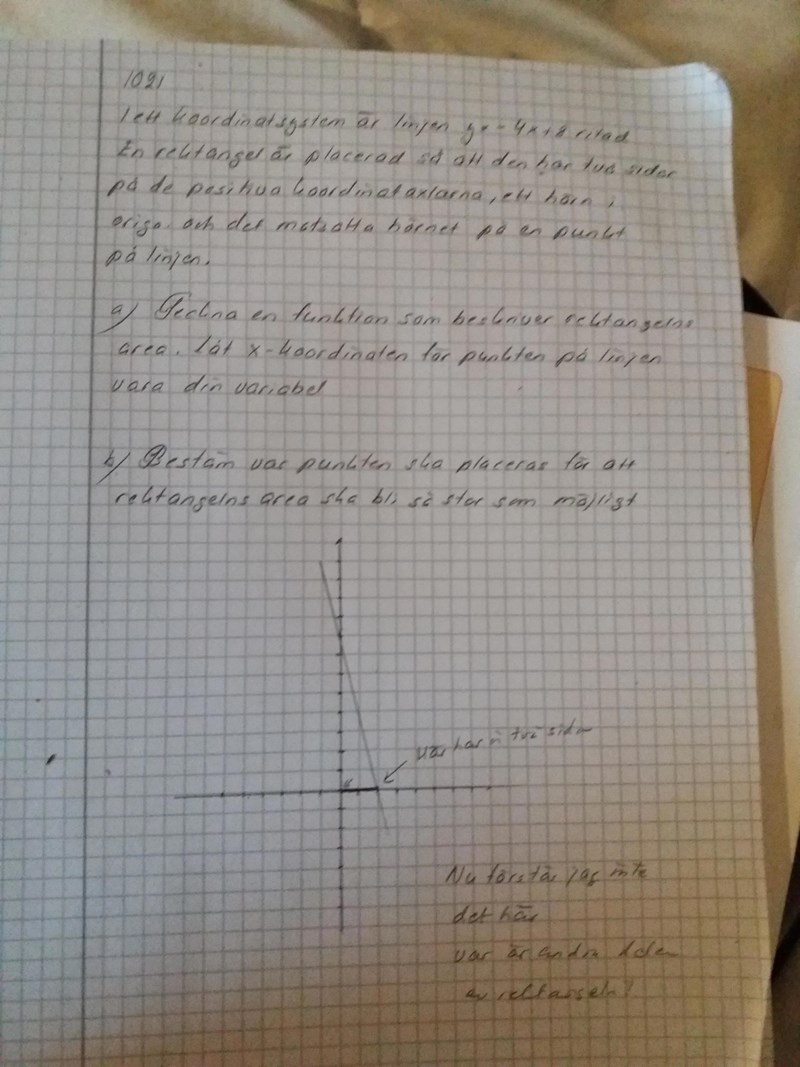 1021
I ett koordinatsystem är linjen y = -4x+8 ritad
En rektangel är placerad så att den har två sidor
på de positiva koordinataxlarna, ett hörn i
origo och det motsatta hörnet på en punkt
på linjen.
a) Teckna en funktion som beskriver rektangelns
area. låt x-koordinaten för punkten på linjen
vara din variabel
b) Bestäm var punkten ska placeras för att
rektangelns area ska bli så stor som möjligt
här har vi två sidor
Nu förstår jag inte
det här
var är andra delen
av